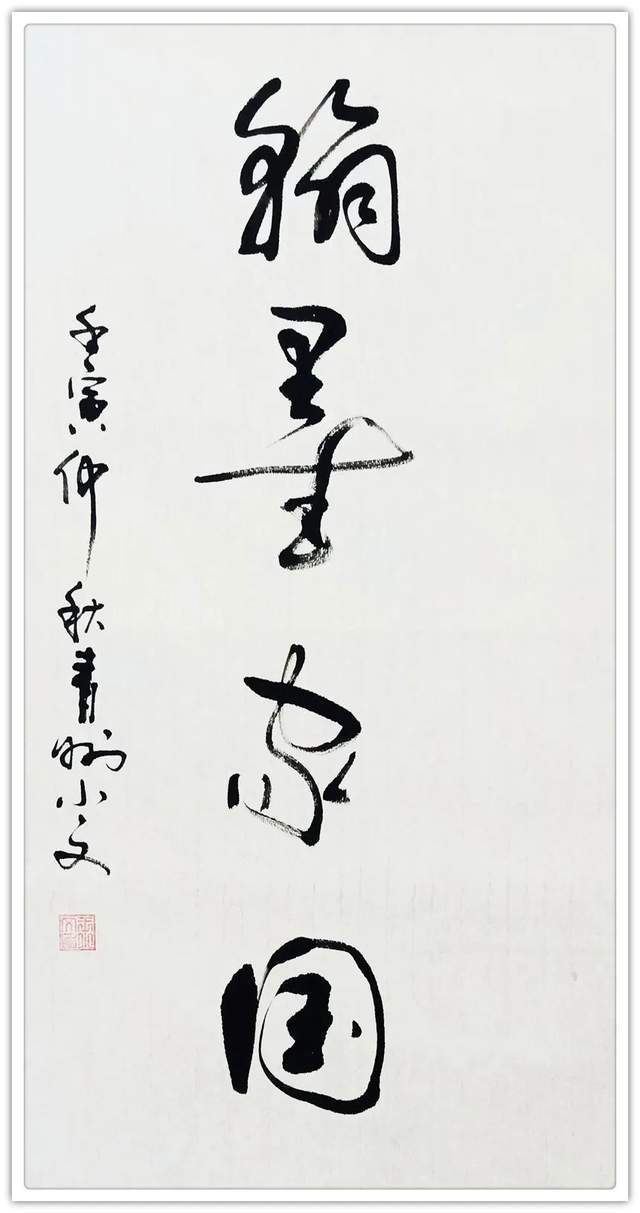 翰墨家国
壬寅仲秋青州小文